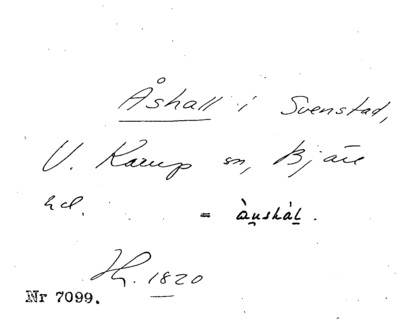 Åshall i Svenstad,
V. Karup sn, Bjäre
hd. = àu̯skàl̠.
H. 1820
Nr 7099.